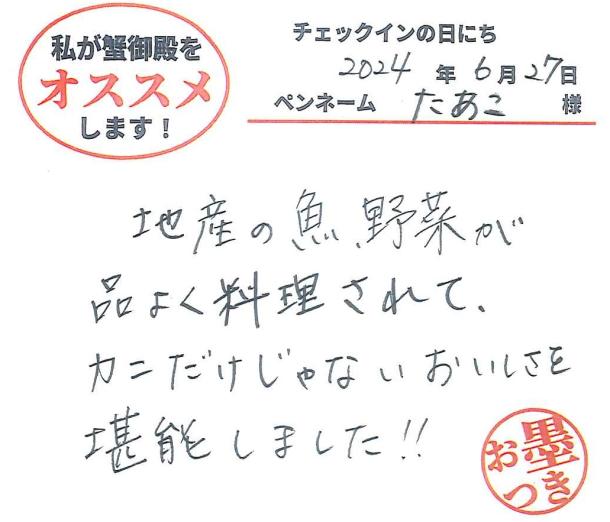 私が蟹御殿を
オススメ
します！
チェックインの日にち
2024 年 6 月 27 日
ペンネーム たあこ 様
地産の魚、野菜が
品よく料理されて、
カニだけじゃないおいしさを
堪能しました!!
お墨
つき